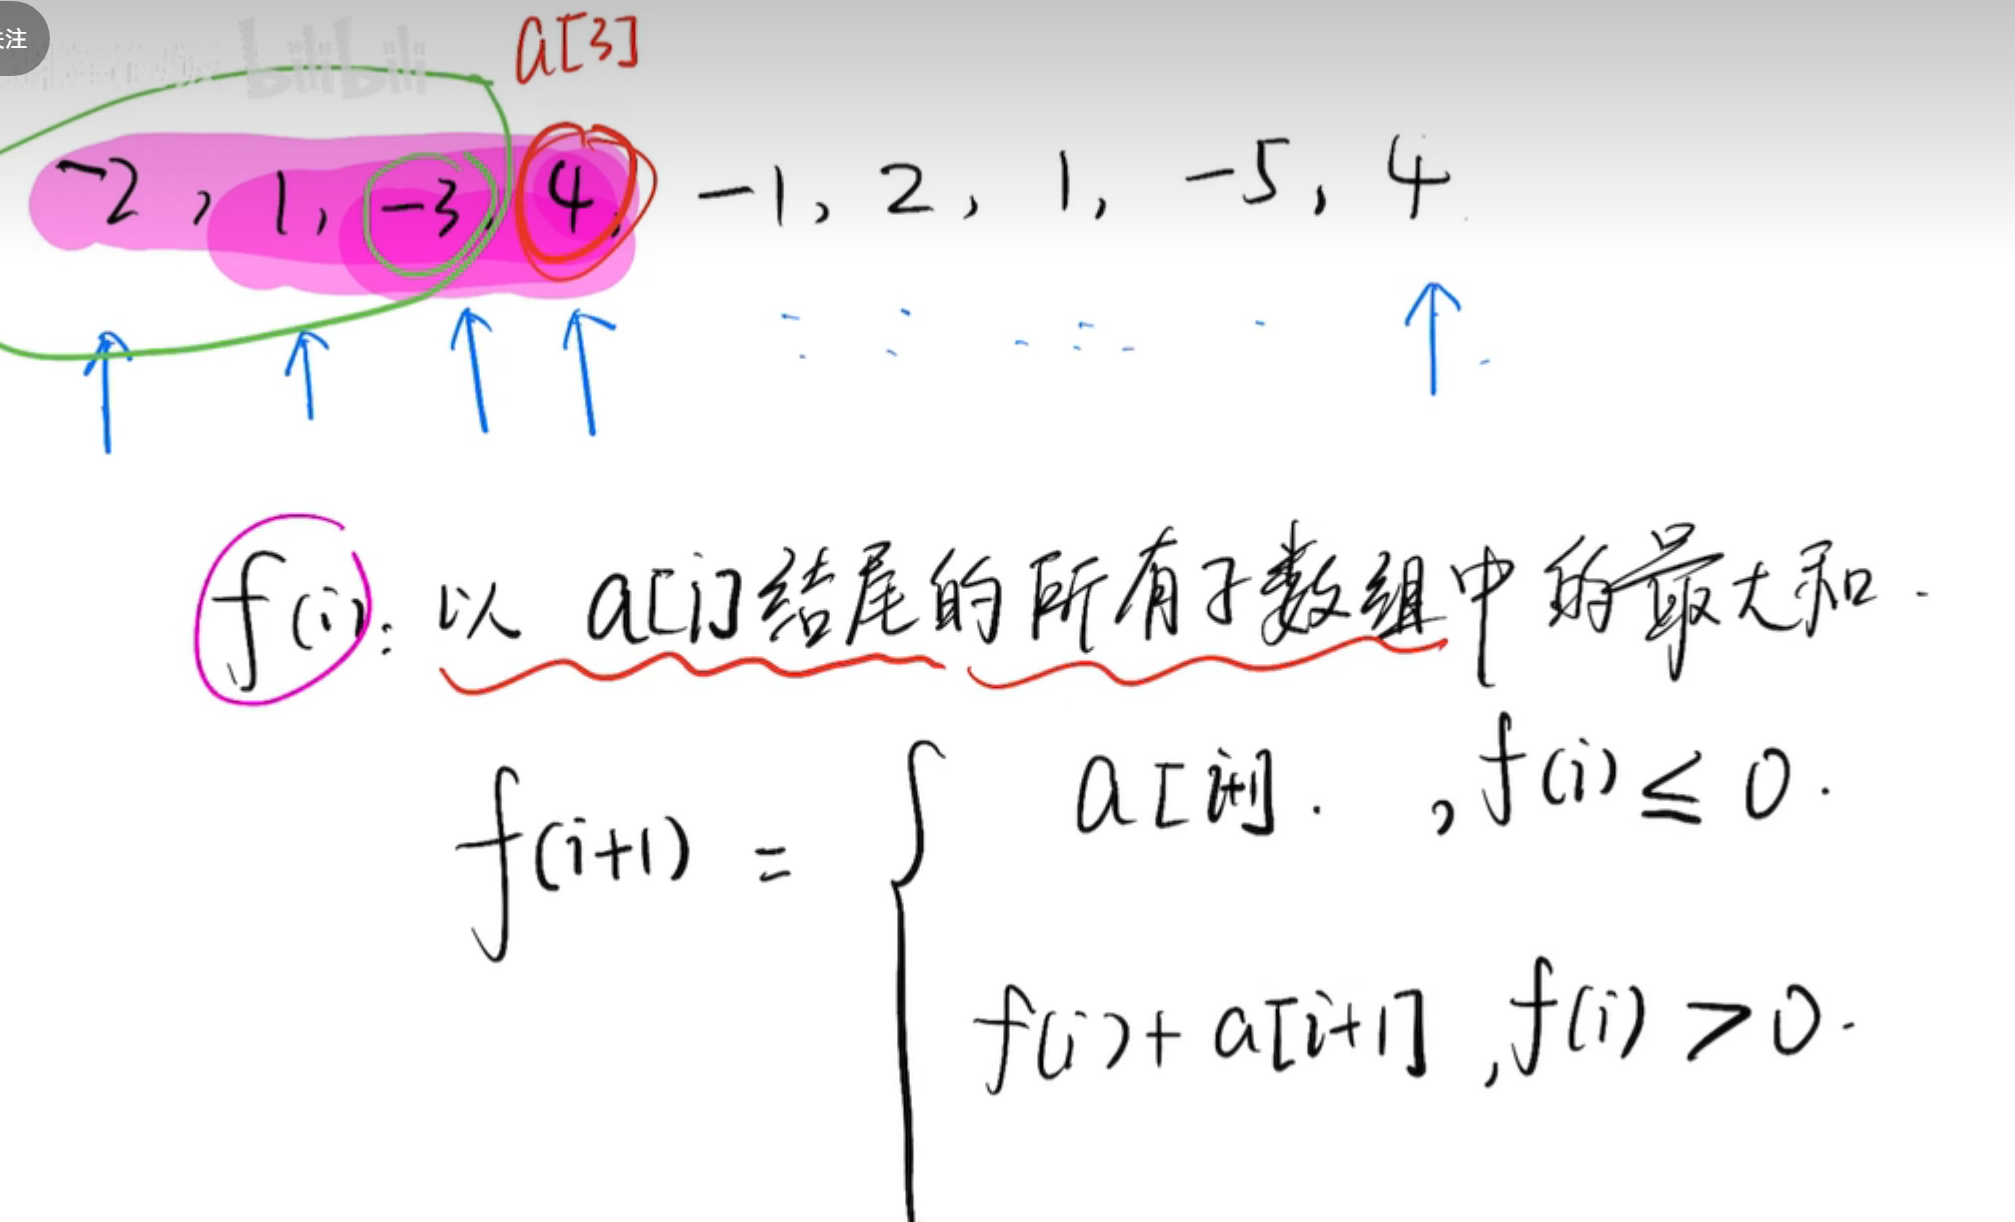 关注
bilibili
a[3]
-2, 1, -3, 4, -1, 2, 1, -5, 4
f(i): 以 a[i]结尾的所有子数组中的最大和.
a[i+1]. , f(i) ≤ 0.
f(i+1) = {
f(i) + a[i+1] , f(i) > 0.